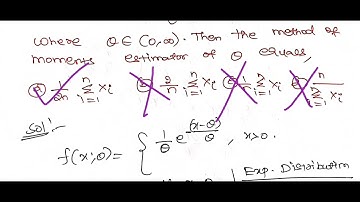 where θ∈(0,∞). Then the method of
moments estimator of θ equals,
1/2n Σ_{i=1}^{n} xi 2/n Σ_{i=1}^{n} xi 1/n Σ_{i=1}^{n} xi n/Σ_{i=1}^{n} xi
Sol:-
f(x;θ) = { 1/θ e^{-(x-θ)/θ}, x>0.
Exp. Distribution